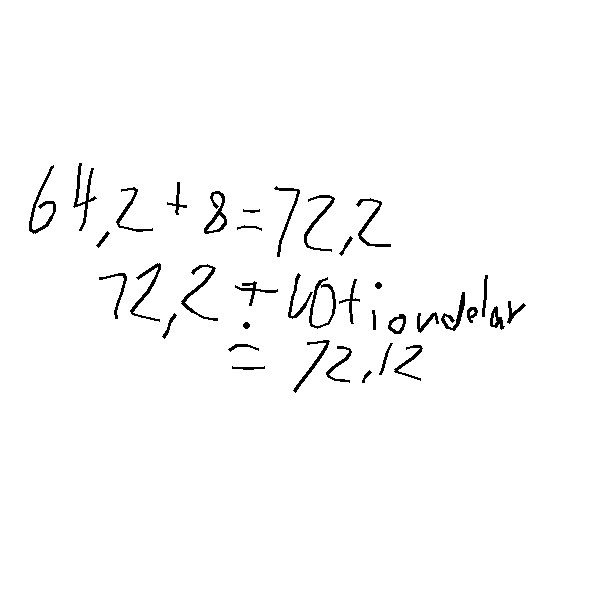 64,2 + 8 = 72,2
72,2 + 10 tiondelar
= 72,12